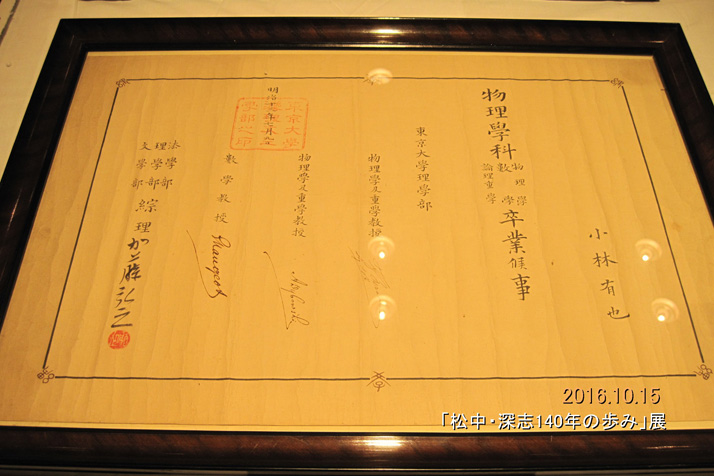 小林有也
物理學科
物理學
數學
論理重學
卒業候事
東京大學理學部
物理學及重學教授
物理學及重學教授
數學教授
Mangeot
明治
法學部
理學部
文學部
綜理 加藤弘之
2016.10.15
「松中・深志140年の歩み」展